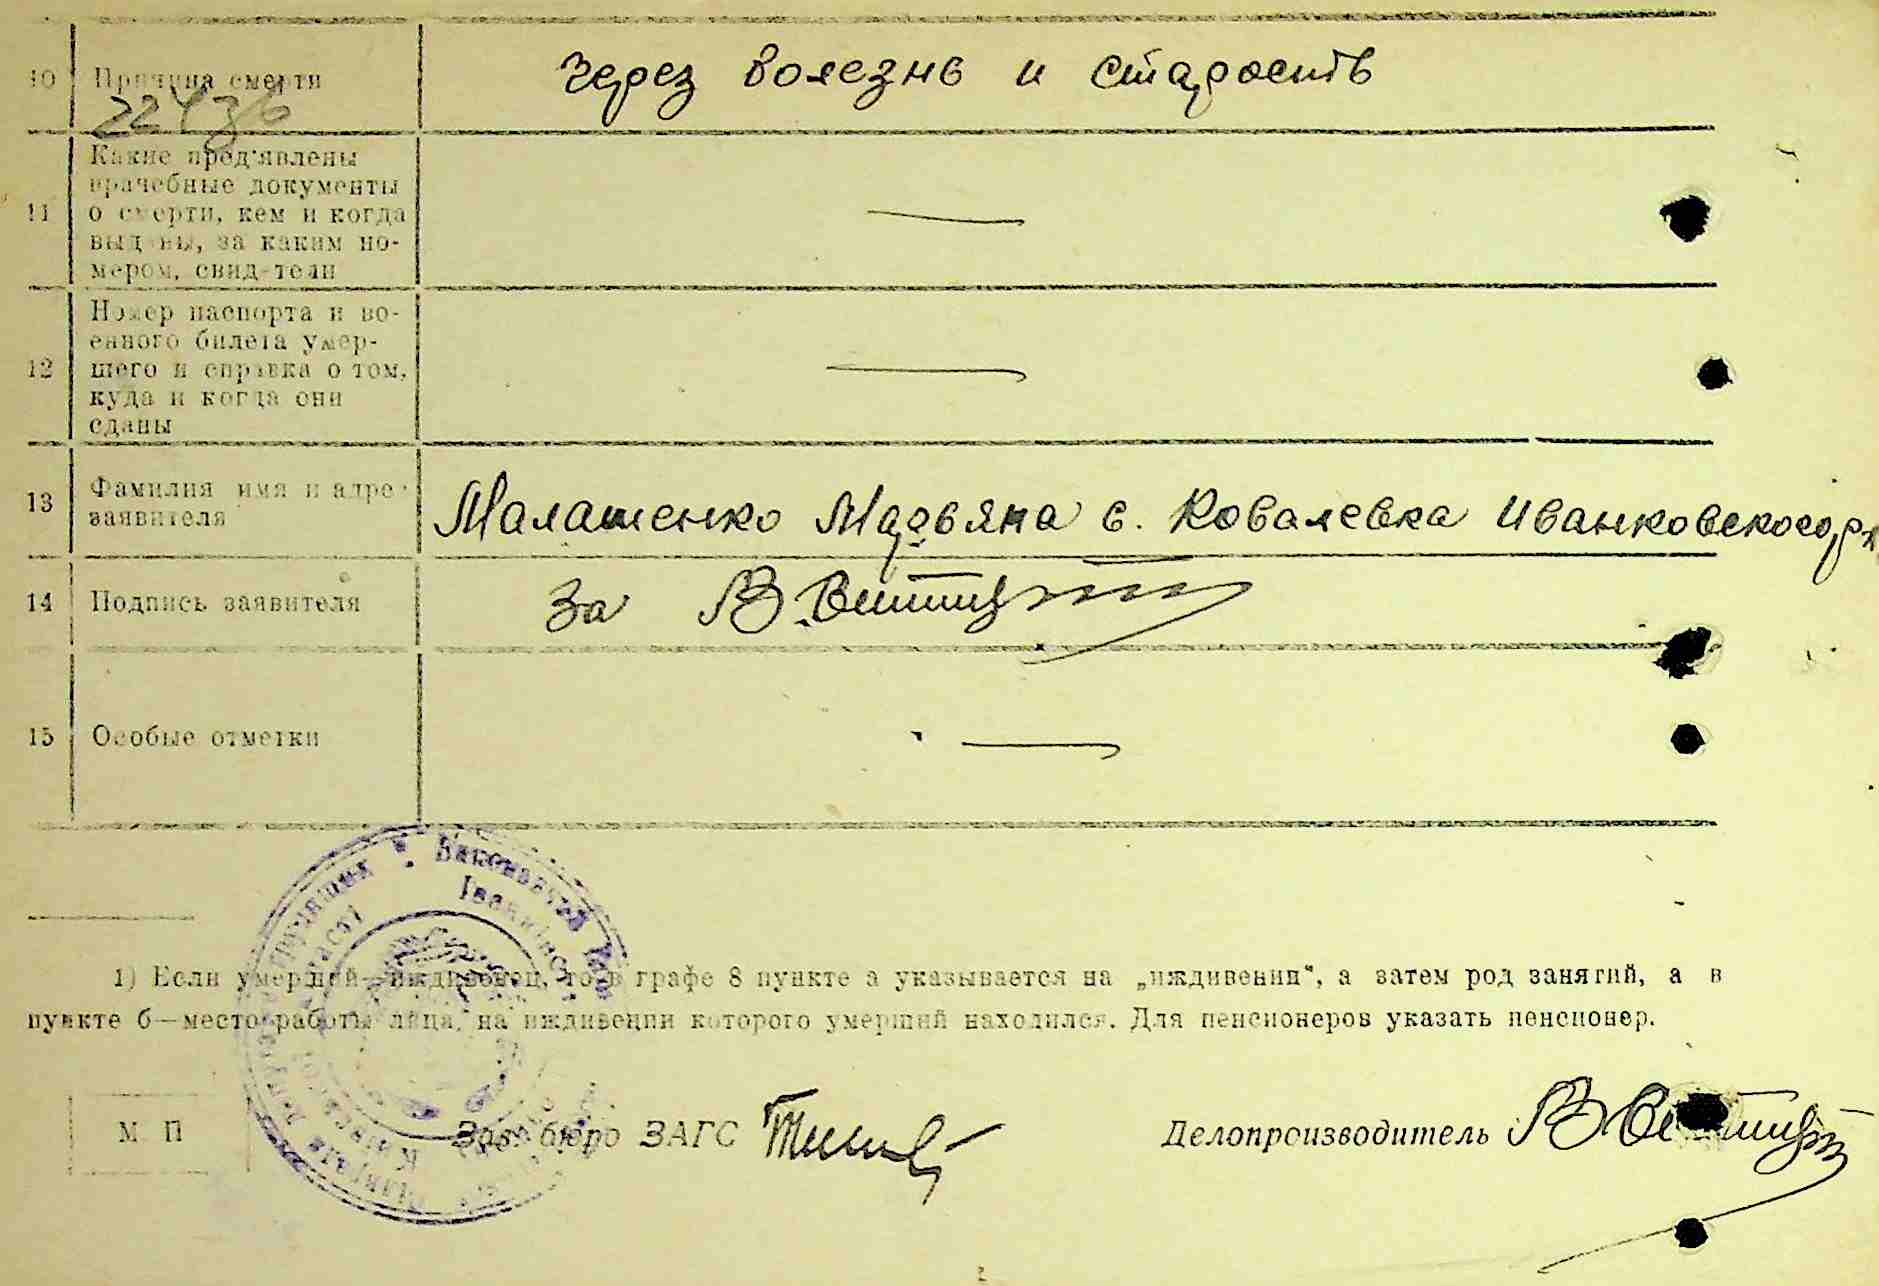 10 Причина смерти через волезнь и старость
11 Какие пред'явлены
врачебные документы
о смерти, кем и когда
выданы, за каким но-
мером, свидетели
12 Номер паспорта и во-
енного билета умер-
шего и справка о том,
куда и когда они
сданы
13 Фамилия имя и адрес
заявителя
Малашенко Марьяна с. Ковалевка Иванковского р-н
14 Подпись заявителя за В.
15 Особые отметки
1) Если умерший—иждивенец, то в графе 8 пункте а указывается на „иждивении", а затем род занятий, а в
пункте б—место работы лица, на иждивении которого умерший находился. Для пенсионеров указать пенсионер.
М П Зав. бюро ЗАГС Делопроизводитель В